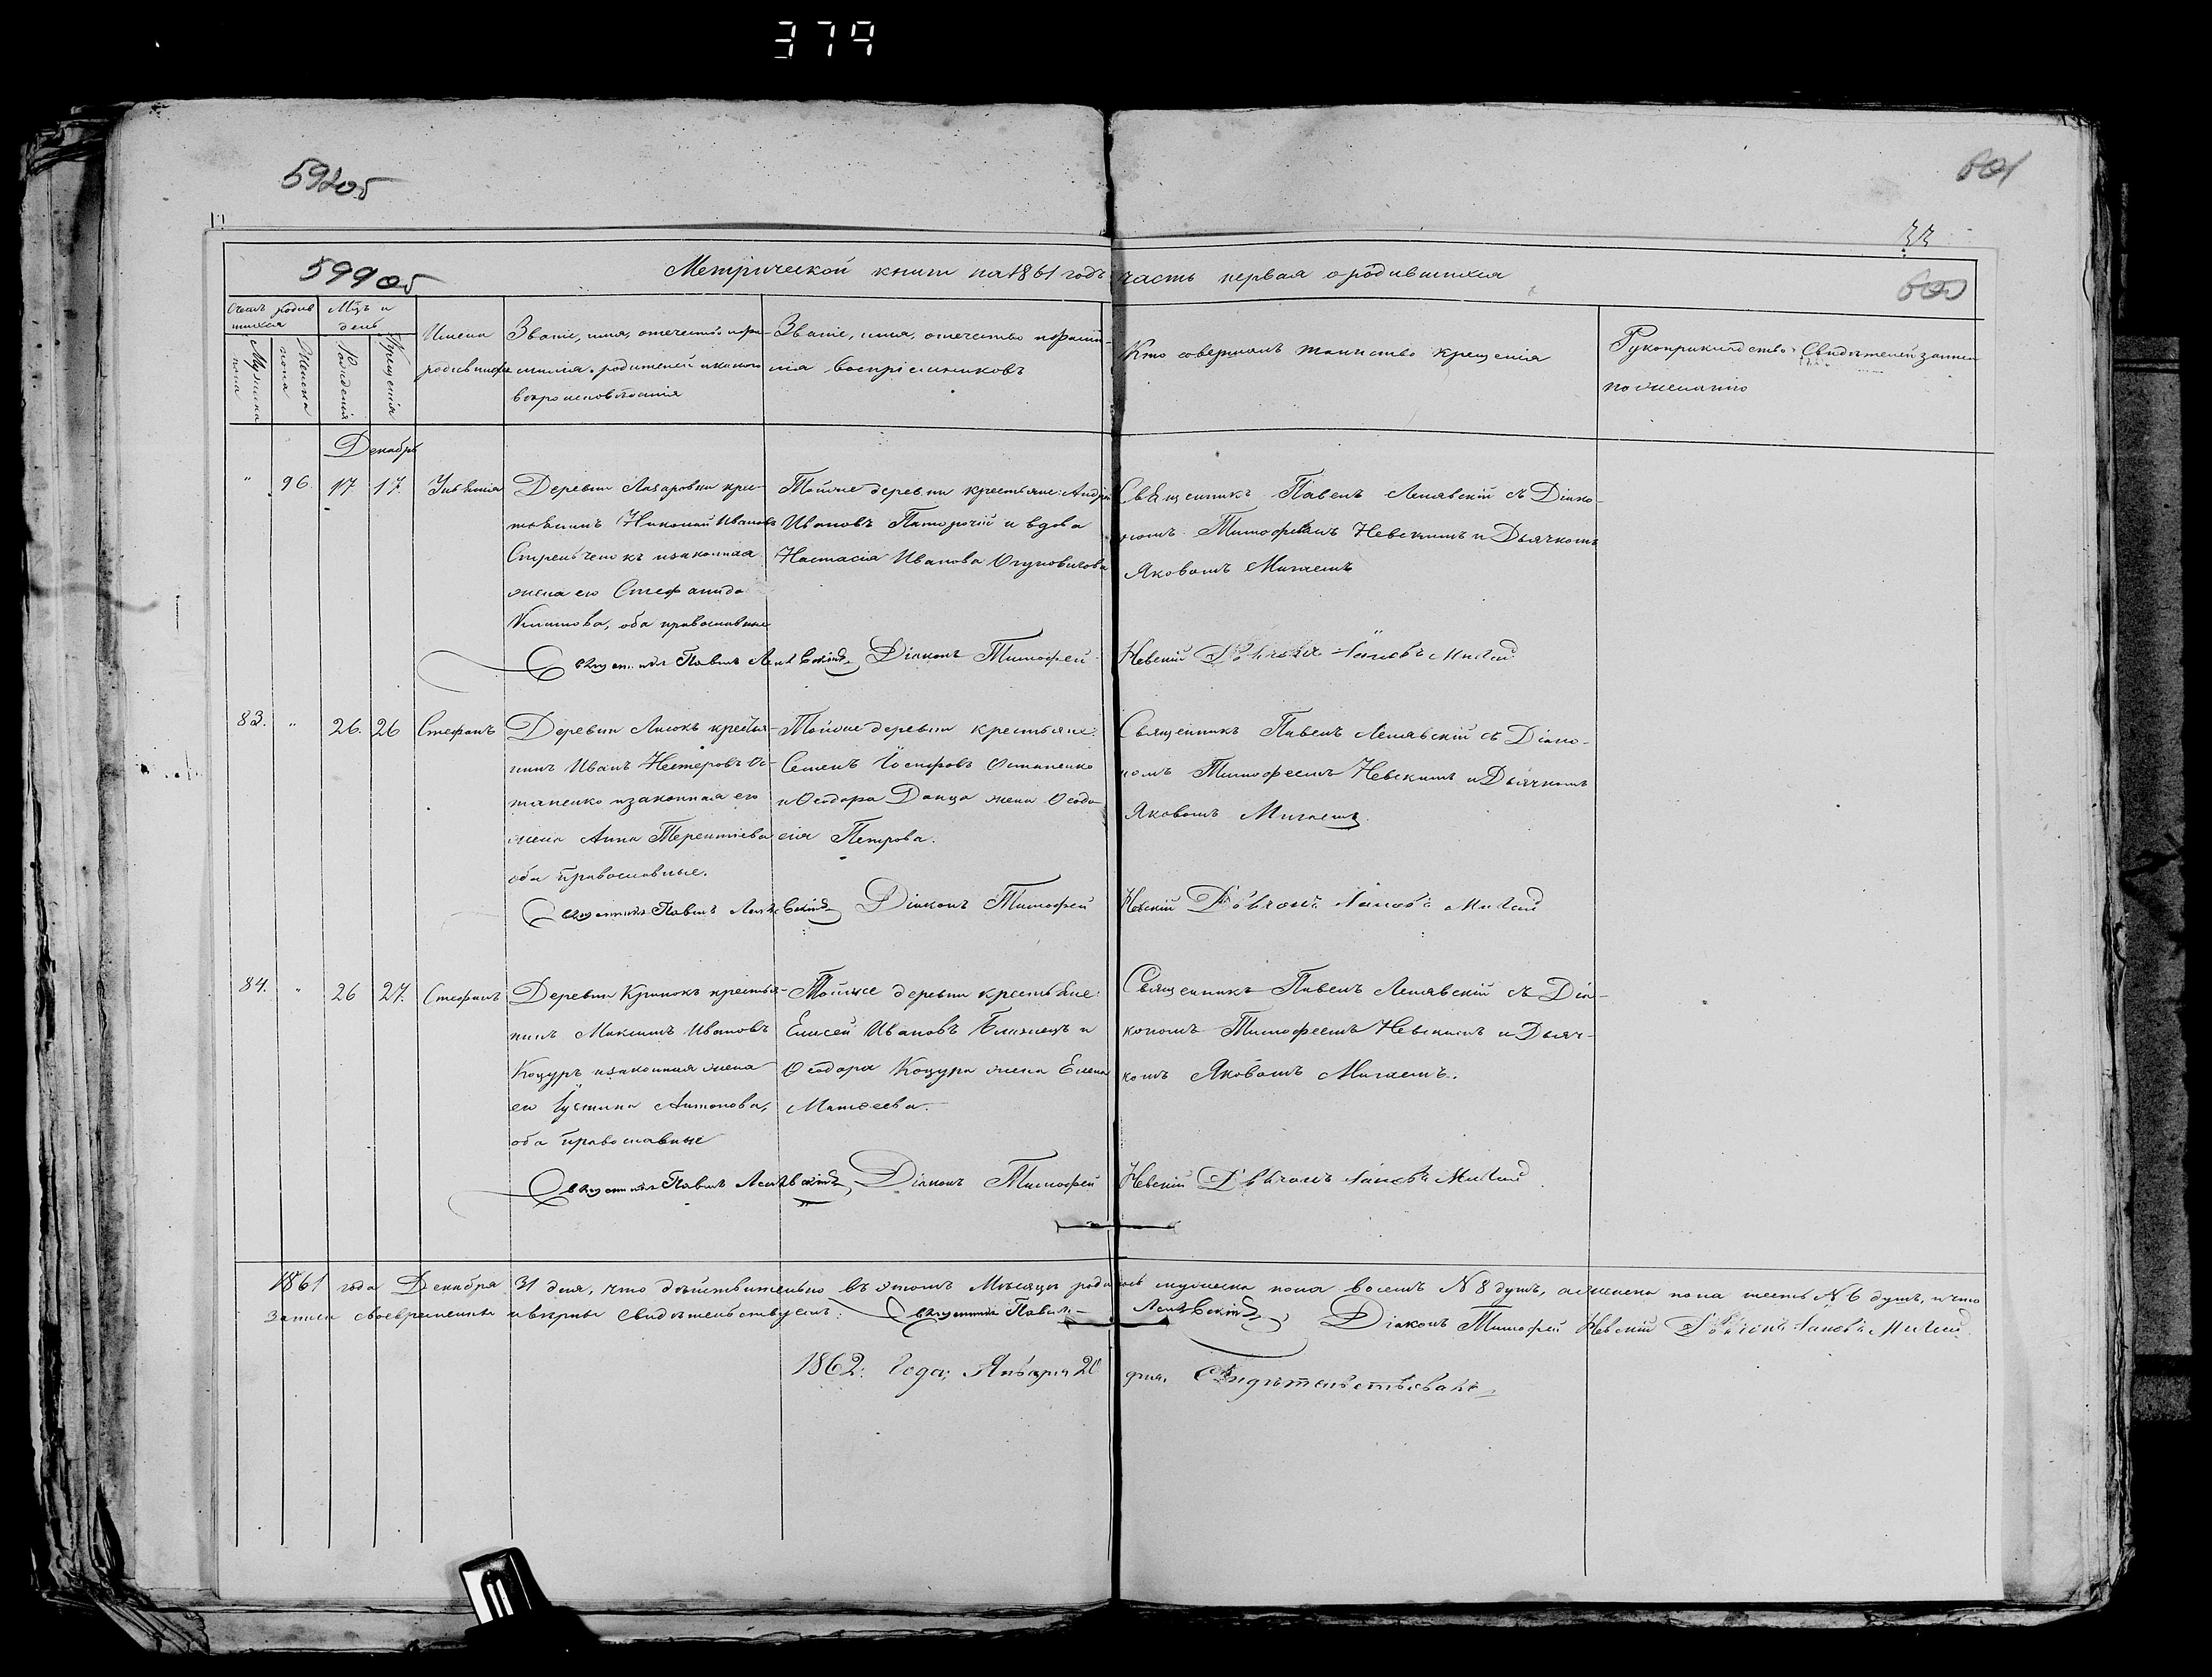 379
592об
601
33
599об
600
Метрической книги на 1861 годъ часть первая о родившихся
Счетъ родив
шихся
Мцъ и
день
Мужска
пола
Женска
пола
Рожденія
Крещенія
Имена
родившихъ
Званіе, имя, отечество и фа-
милія родителей и какого
вѣроисповѣданія
Званіе, имя, отечество и фамил-
лія воспріемниковъ
Кто совершалъ таинство крещенія
Рукоприкладство Свидѣтелей записи
по желанію
Декабрь
" 96. 17. 17. Деревни Лазаровки крес-
тьянинъ Николай Ивановъ
Стрельченокъ и законная
жена его Стефанида
оба православные
Тойже деревни крестьяне: Андрей
Ивановъ и вдова
Настасія Иванова
Священникъ Павелъ Ленявскій съ Діако-
номъ Тимофеемъ Невскимъ и Дьячкомъ
Яковомъ Мигаемъ
Священникъ Павелъ Ленявскій Діаконъ Тимофей Невскій Дьячокъ Яковъ Мигай
83. " 26. 26 Стефанъ
Деревни Лисокъ крестья-
нинъ Иванъ Нестеровъ Ос-
тапенко и законная его
жена Анна Терентіева
оба православные.
Тойже деревни крестьяне:
Семенъ Іосифовъ Остапенко
и Ѳеодора Донца жена Ѳеодо-
сія Петрова.
Священникъ Павелъ Ленявскій съ Діако-
номъ Тимофеемъ Невскимъ и Дьячкомъ
Яковомъ Мигаемъ.
Священникъ Павелъ Ленявскій Діаконъ Тимофей Невскій Дьячокъ Яковъ Мигай
84. " 26 27. Стефанъ
Деревни Кринокъ крестья-
нинъ Максимъ Ивановъ
Коцуръ и законная жена
его Іустина Антонова,
оба православные
Тойже деревни крестьяне:
Елисей Ивановъ Близнецъ и
Ѳеодора Коцура жена Елена
Матѳеева.
Священникъ Павелъ Ленявскій съ Діа-
кономъ Тимофеемъ Невскимъ и Дьяч-
комъ Яковомъ Мигаемъ.
Священникъ Павелъ Ленявскій Діаконъ Тимофей Невскій Дьячокъ Яковъ Мигай
1861 года Декабря 31 дня, что дѣйствительно въ этомъ Мѣсяцѣ родилось мужеска пола восемъ № 8 душъ, а женска пола шесть № 6 душъ, и что
записи своевременны и вѣрны свидѣтельствуемъ: Священникъ Павелъ Ленявскій Діаконъ Тимофей Невскій Дьячокъ Яковъ Мигай
1862: Года: Января 20 дня. Свидѣтельствовалъ